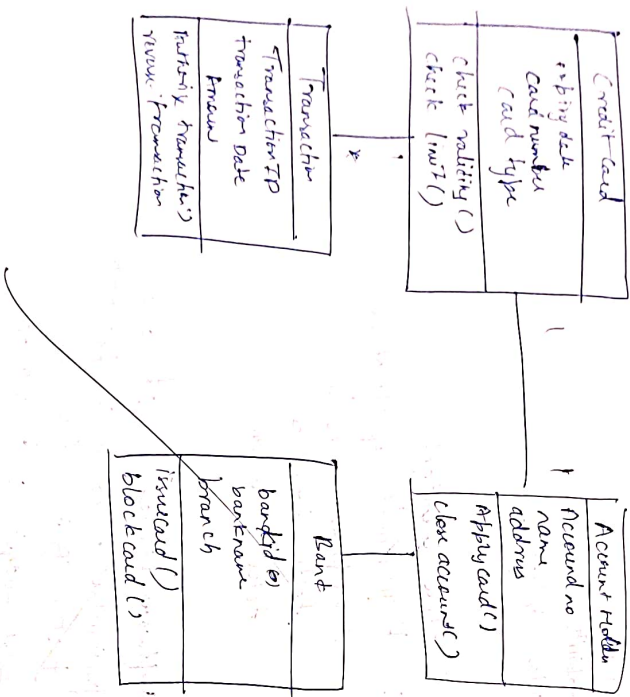 Credit Card
expiry date
card number
card type
check validity()
check limit()
1
*
Transaction
Transaction ID
transaction Date
Amoun
reverse transaction
1
Account Holder
Accound no
name
address
Apply card()
close account()
Bank
bankname
branch
issuecard()
blockcard()